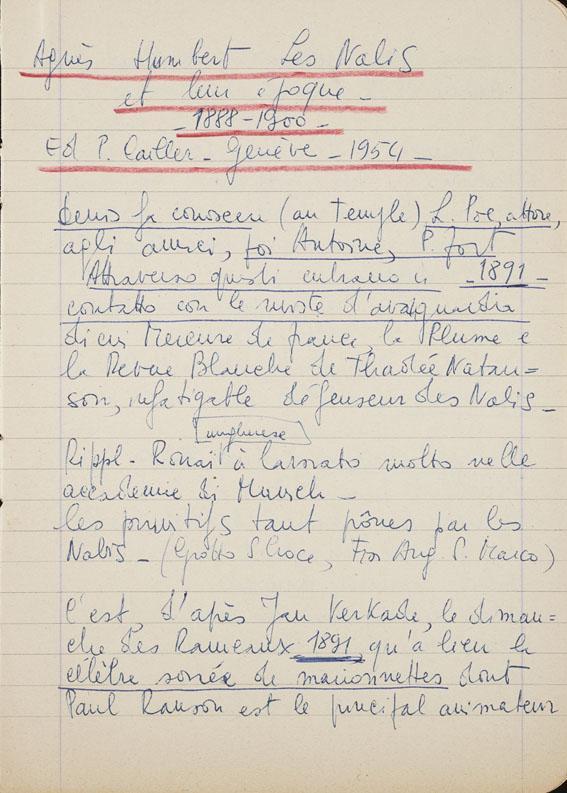 Agnès Humbert Les Nabis
et leur époque -
- 1888-1900 -
Ed P. Cailler - Genève - 1954 -
Denis fa conoscere (au Temple) L. Poe, attore,
agli amici, poi Antoine, P. Fort
Attraverso questi entrano in - 1891 -
contatto con le riviste d'avanguardia
di cui Mercure de france, la Plume e
la Revue Blanche de Thadée Natan=
son, infatigable défenseur des Nabis -
ungherese
Rippl-Ronai à lavorato molto nelle
accademie di Munich -
les primitifs tant prônés par les
Nabis - (Giotto S Croce, Fra Ang. S. Marco)
C'est, d'après Jan Verkade, le diman=
che des Rameaux 1891 qu'a lieu la
célèbre soirée de marionnettes dont
Paul Ranson est le principal animateur